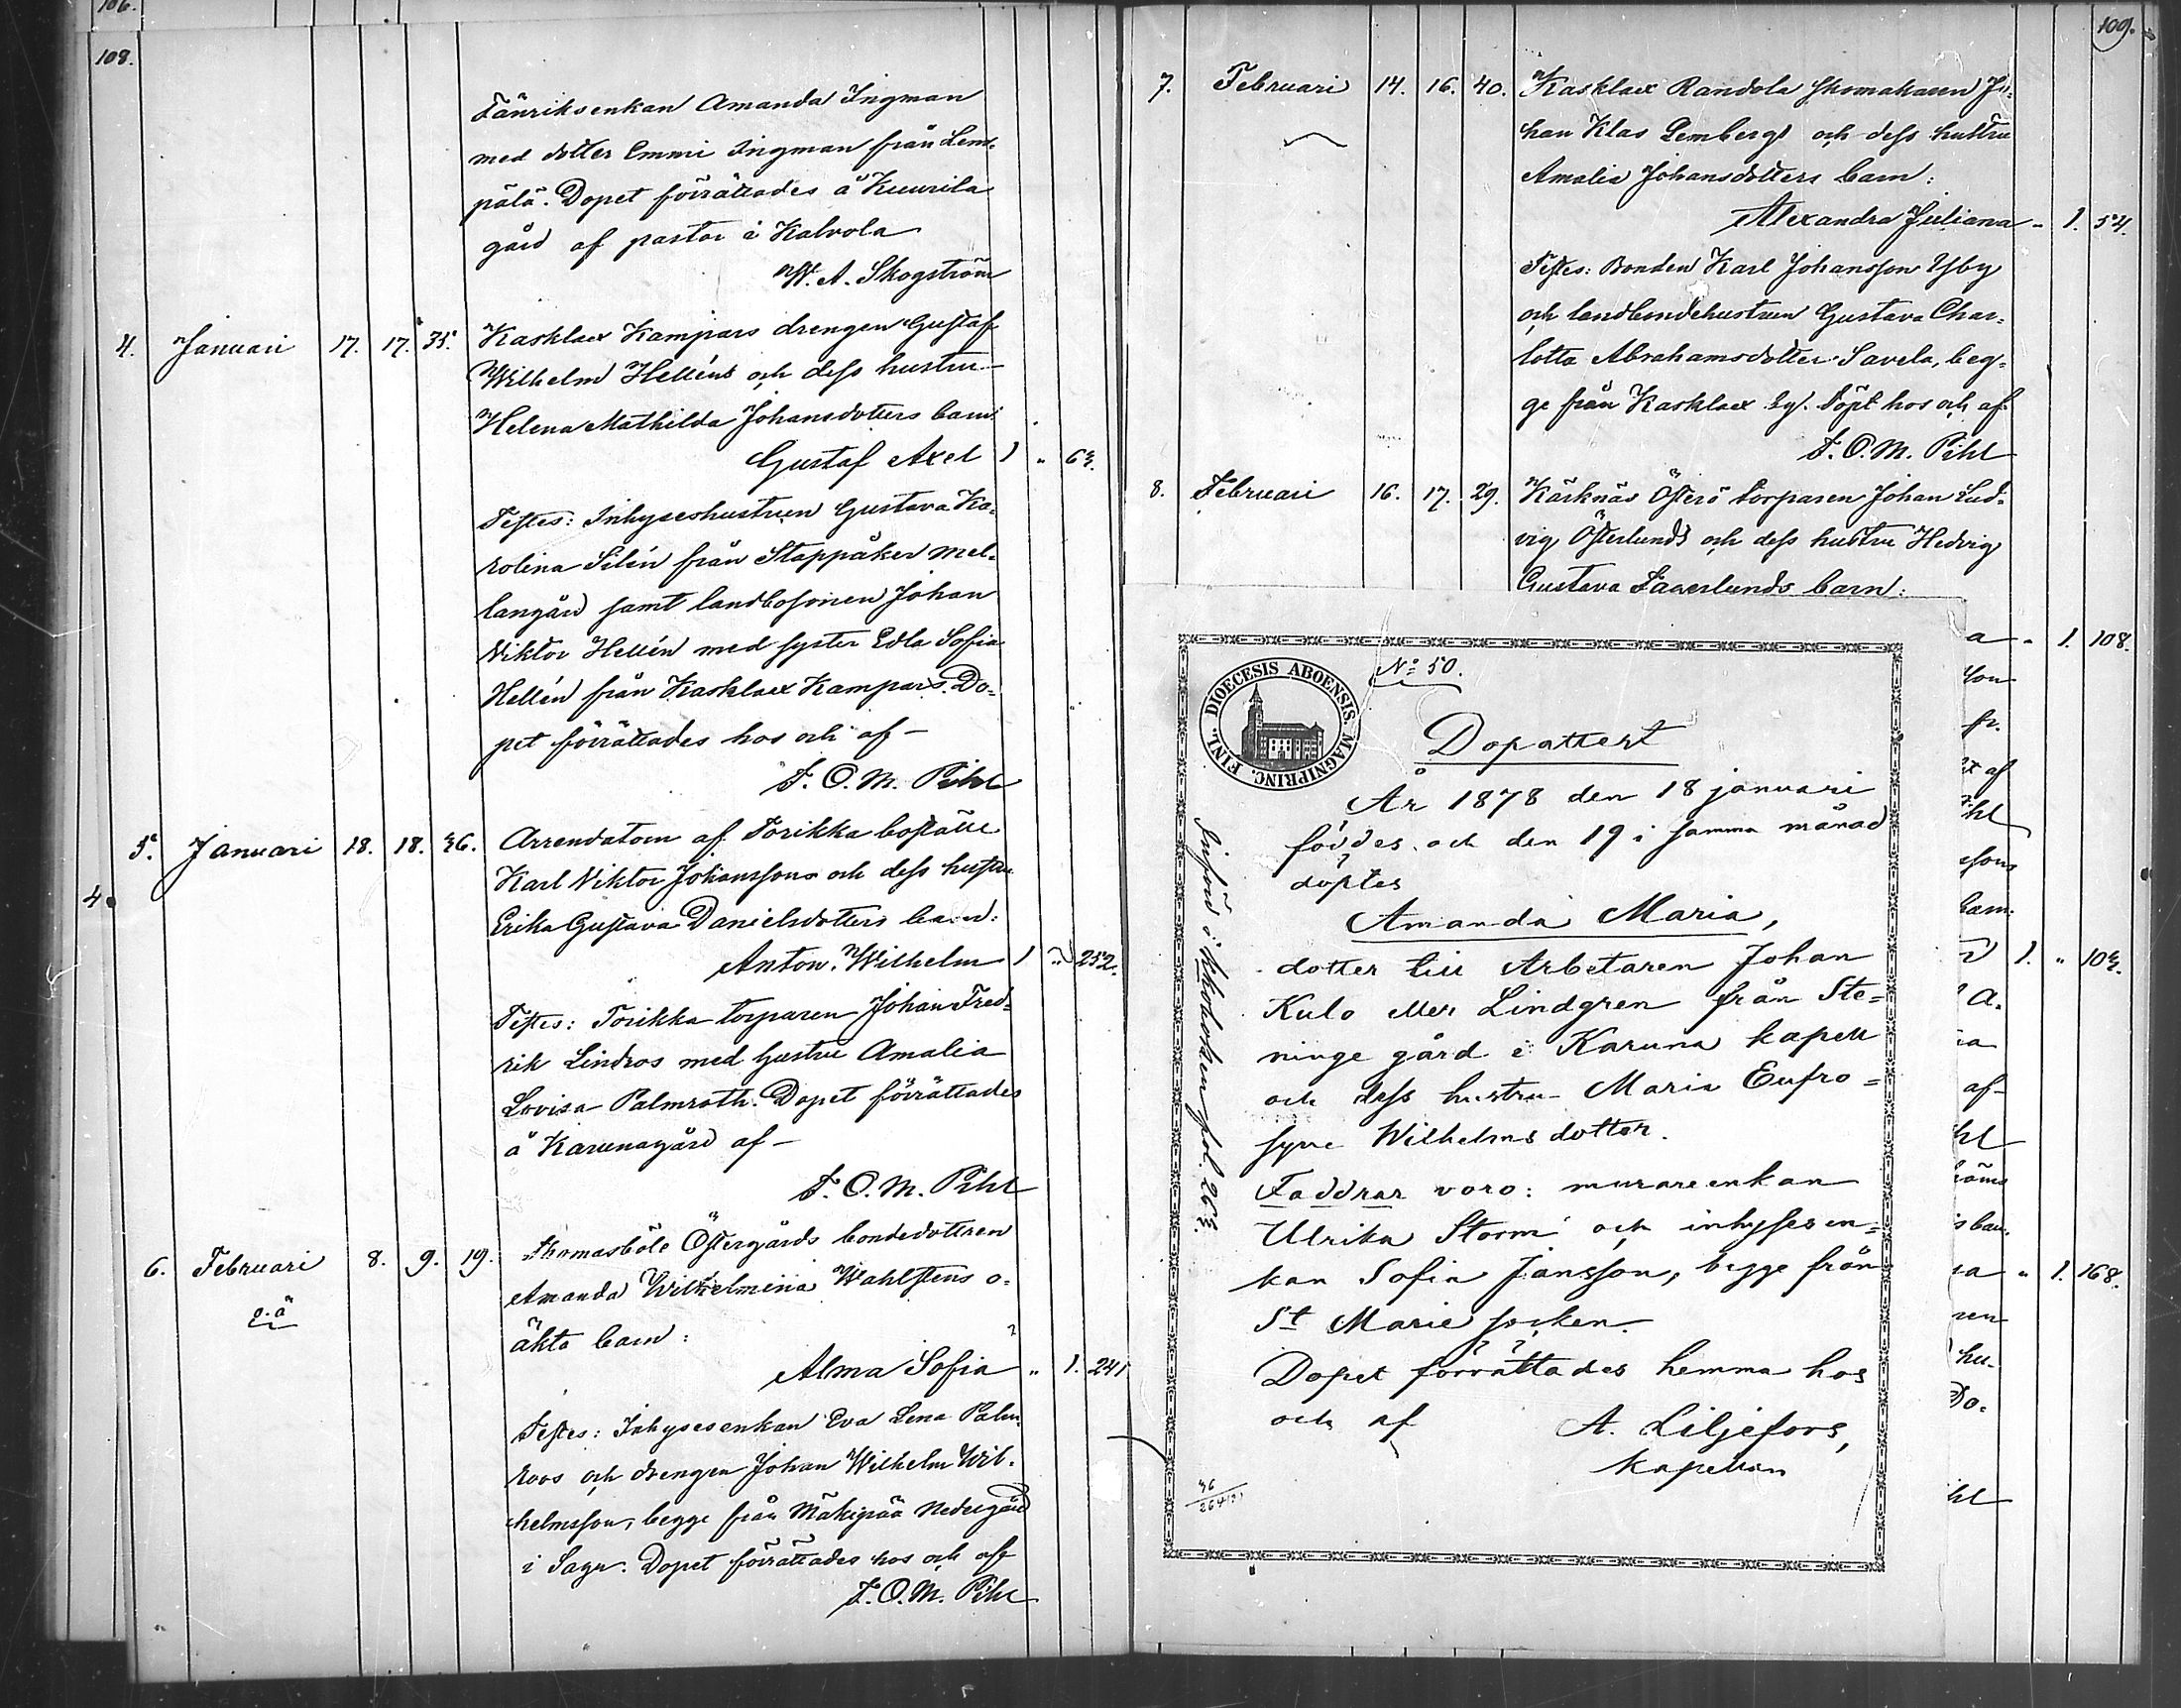 106.
108.
Fänriksenkan Amanda Ingman
med dotter Emmi Ingman från Lem-
pälä. Dopet förrättades å Kuurila
gård af pastor i Kalvola
W. A. Skogström
4. Januari 17. 17. 35. Kasklax Kampars drengen Gustaf
Wilhelm Helléns och dess hustru
Helena Mathilda Johansdotters barn:
Gustaf Axel 1 „ 63.
Testes: Inhyseshustrun Gustava Ka-
rolina Silén från Stappåker mel-
langård samt landbosonen Johan
Viktor Hellén med syster Edla Sofia
Hellén från Kasklax Kampars. Do-
pet förrättades hos och af
F. O. M. Pihl
5. Januari 18. 18. 36. Arrendatorn af Torikka boställe
Karl Viktor Johanssons och dess hustru
Erika Gustava Danielsdotters barn:
Anton Wilhelm 1 „ 252.
4
Testes: Torikka torparen Johan Fred-
rik Lindros med hustru Amalia
Lovisa Palmroth. Dopet förrättades
å Karunagård af
F. O. M. Pihl
6. Februari 8. 9. 19. Thomasböle Östergårds bondedottren
Amanda Wilhelmina Wahlstens o-
äkta barn:
o.ä
Alma Sofia „ 1. 241
Testes: Inhysesenkan Eva Lena Palm-
roos och drengen Johan Wilhelm Wil-
helmsson, begge från Mäkipää Nedergård
i Sagu. Dopet förrättades hos och af
F. O. M. Pihl
109.
7. Februari 14. 16. 40. Kasklax Randola skomakaren Jo-
han Klas Lembergs och dess hustru
Amalia Johansdotters barn:
Alexandra Juliana „ 1. 54.
Testes: Bonden Karl Johansson Ysby
och landbondehustrun Gustava Char-
lotta Abrahamsdotter Savela, beg-
ge från Kasklax by. Döpt hos och af
F. O. M. Pihl
8. Februari 16. 17. 29. Kärknäs Österö torparen Johan Lud-
vig Österlunds och dess hustru Hedvig
Gustava Fagerlunds barn:
a „ 1. 108.
fr.
af
hl
barn:
1. „ 103.
A.
af
hl
a „ 1. 168.
ren
hu-
Do-
hl
DIOECESIS ABOENSIS. MAGNIPRINC. FINL.
No 50.
Dopattest
År 1878 den 18 januari
föddes och den 19 i samma månad
döptes
Amanda Maria,
dotter till Arbetaren Johan
Kulo eller Lindgren från Ste-
ninge gård i Karuna kapell
och dess hustru Maria Eufro-
syne Wilhelmsdotter.
Faddrar voro: murareenkan
Ulrika Storm och inhysesen-
kan Sofia Jansson, begge från
St Marie socken.
Dopet förrättades hemma hos
och af A. Liljefors,
kapellan
Införd i kkoboken fol. 263.
36